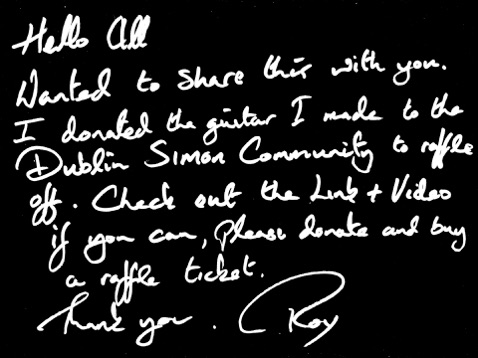 Hello All
Wanted to share this with you.
I donated the guitar I made to the
Dublin Simon Community to raffle
off. Check out the Link + Video
if you can, please donate and buy
a raffle ticket.
Thank you. Roy